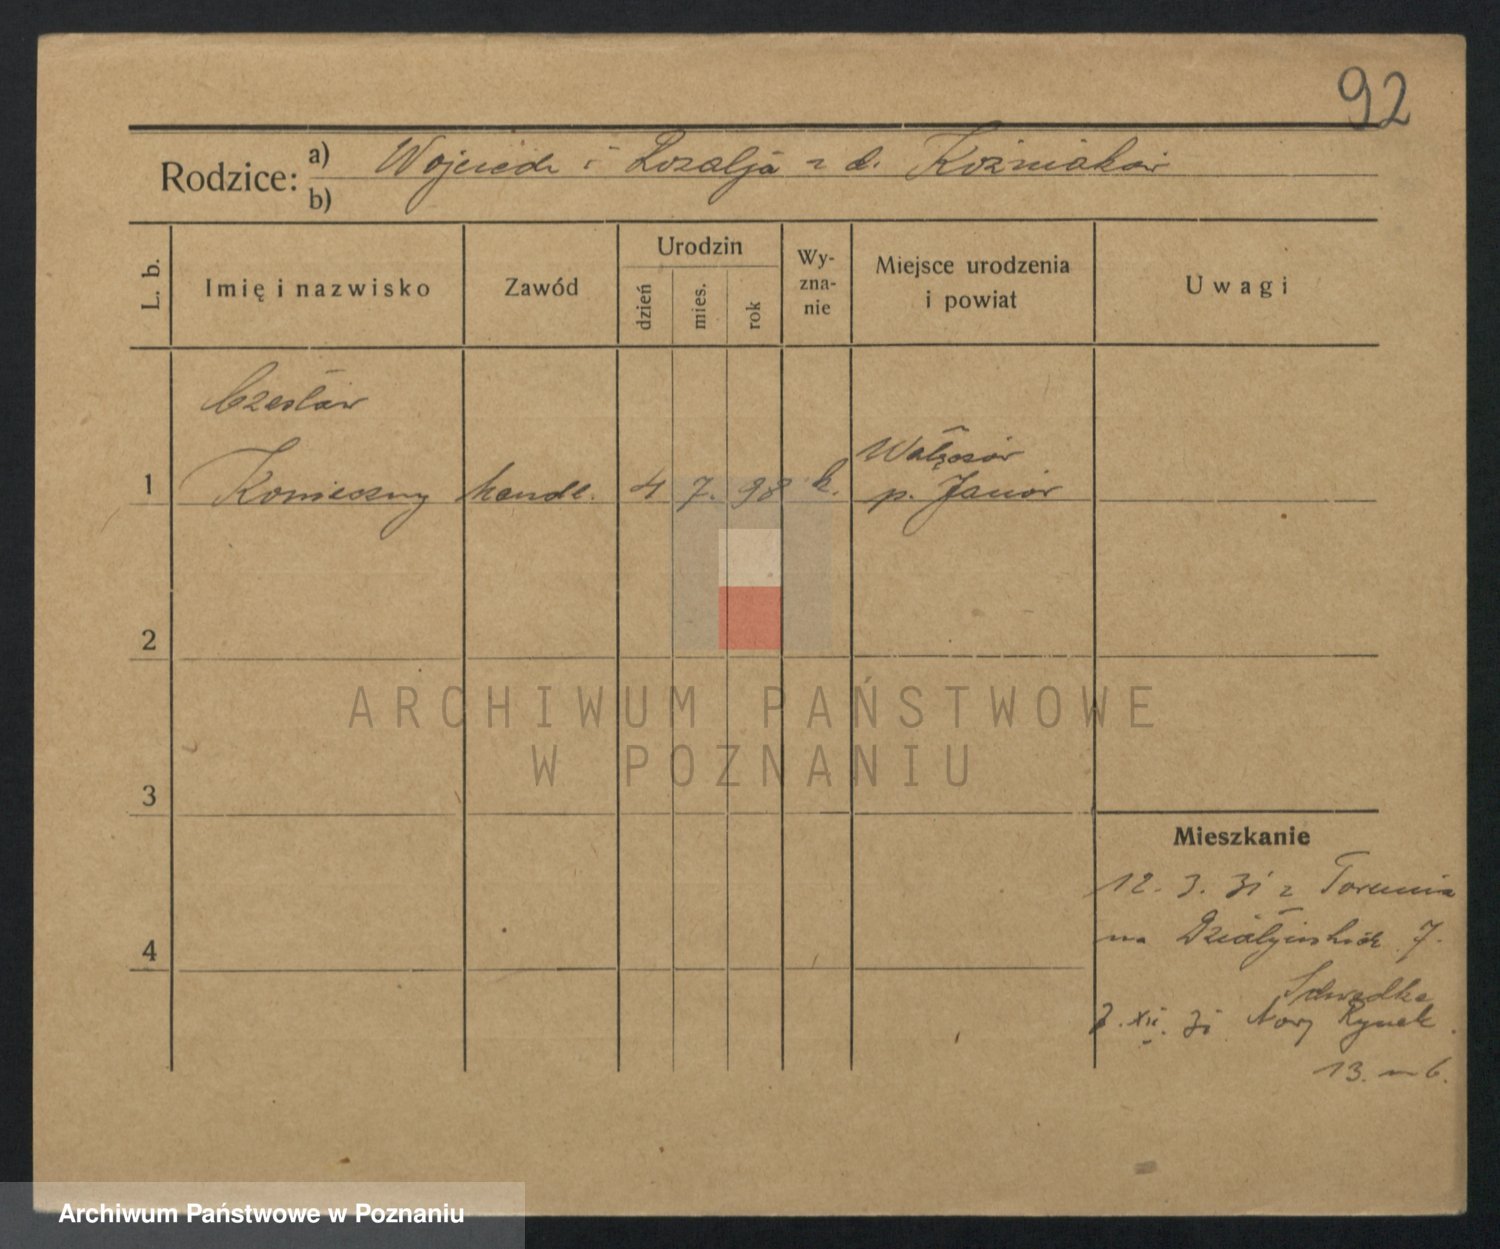 92
Rodzice:
a) Wojciech i Rozalja z d. Koźniaków
b)
L. b.
Imię i nazwisko
Zawód
Urodzin
dzień
mies.
rok
Wy-
zna-
nie
Miejsce urodzenia
i powiat
Uwagi
Czesław
1
Konieczny handl. 4 7. 98 k.
p.
2
3
4
ARCHIWUM PAŃSTWOWE
W POZNANIU
Mieszkanie
12. 3. 31 z Torunia
na Działyńskich 7.
7. XII. 31 Nowy Rynek
13. m 6.
Archiwum Państwowe w Poznaniu